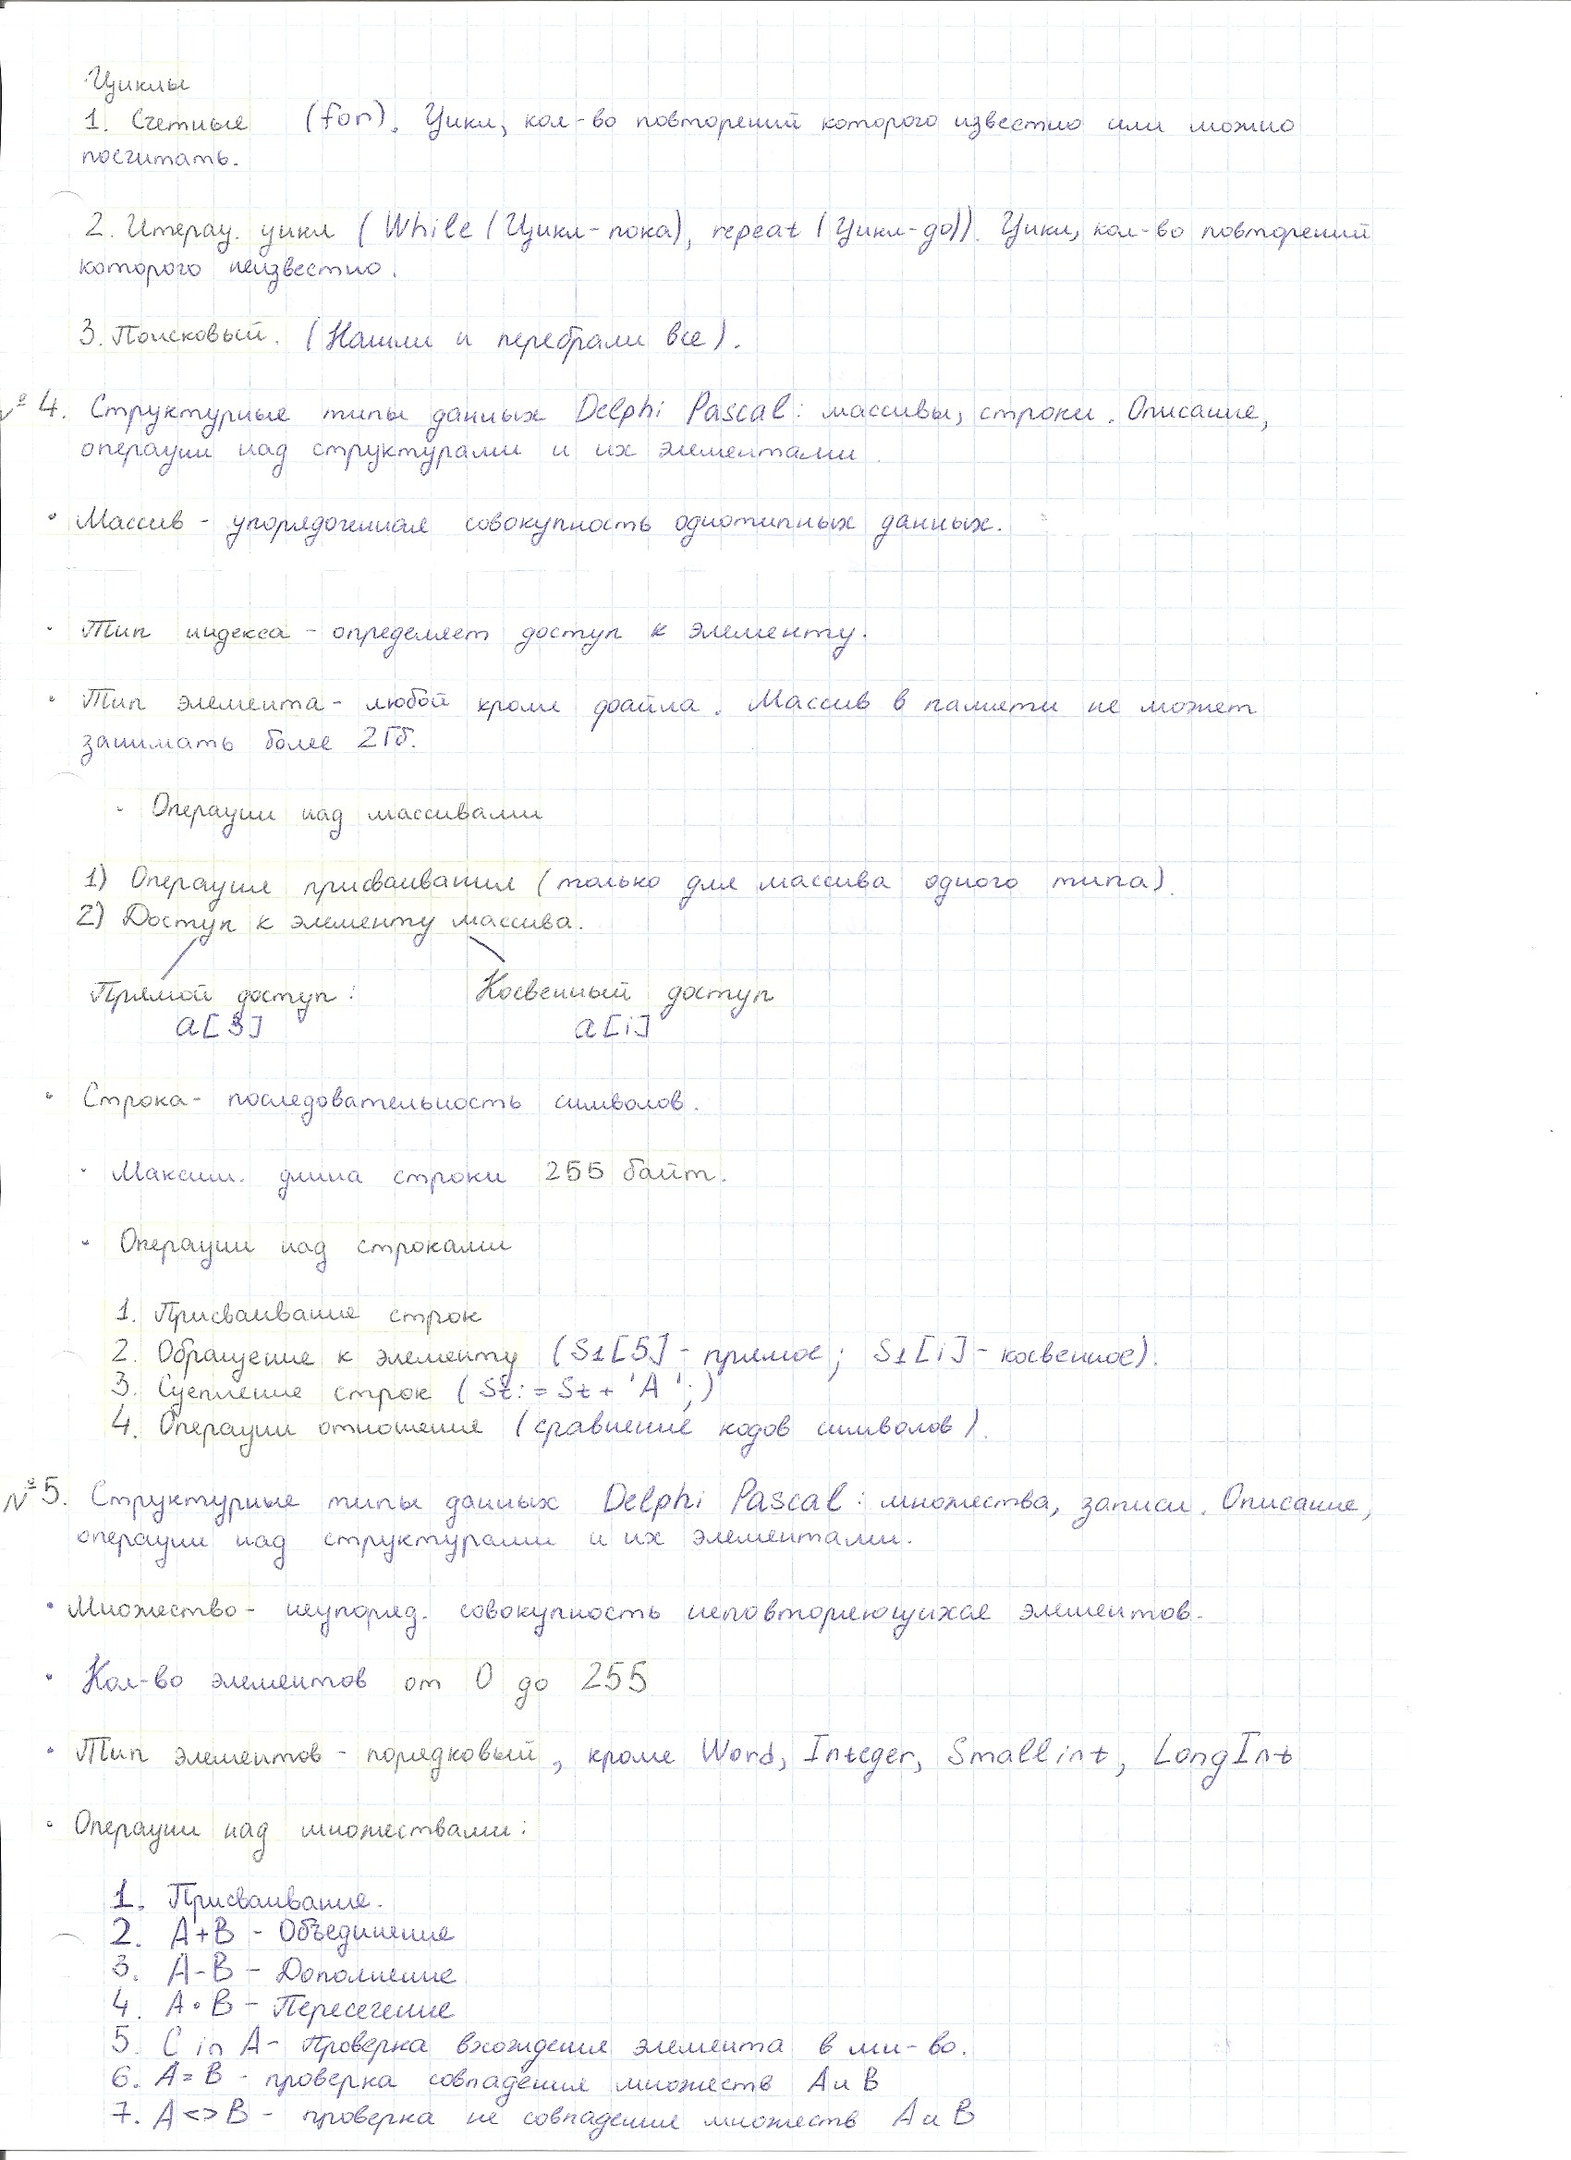 Циклы
1. Счетные (for). Цикл, кол-во повторений которого известно или можно
посчитать.
2. Итерац. цикл (While (Цикл-пока), repeat (Цикл-до)). Цикл, кол-во повторений
которого неизвестно.
3. Поисковый. (Нашли и перебрали все).
№ 4. Структурные типы данных Delphi Pascal: массивы, строки. Описание,
операции над структурами и их элементами.
• Массив - упорядоченная совокупность однотипных данных.
• Тип индекса - определяет доступ к элементу.
• Тип элемента - любой кроме файла. Массив в памяти не может
занимать более 2Гб.
• Операции над массивами
1) Операция присваивания (только для массива одного типа).
2) Доступ к элементу массива.
Прямой доступ: Косвенный доступ
a[3] a[i]
• Строка - последовательность символов.
• Максим. длина строки 255 байт.
• Операции над строками
1. Присваивание строк
2. Обращение к элементу (S1[5] - прямое; S1[i] - косвенное).
3. Сцепление строк (St:= St + 'A';)
4. Операции отношения (сравнение кодов символов).
№ 5. Структурные типы данных Delphi Pascal: множества, записи. Описание,
операции над структурами и их элементами.
• Множество - неупоряд. совокупность неповторяющихся элементов.
• Кол-во элементов от 0 до 255
• Тип элементов - порядковый, кроме Word, Integer, Smallint, LongInt
• Операции над множествами:
1. Присваивание.
2. A+B - Объединение
3. A-B - Дополнение
4. A•B - Пересечение
5. C in A - Проверка вхождения элемента в мн-во.
6. A=B - проверка совпадения множеств A и B
7. A<>B - проверка не совпадения множеств A и B